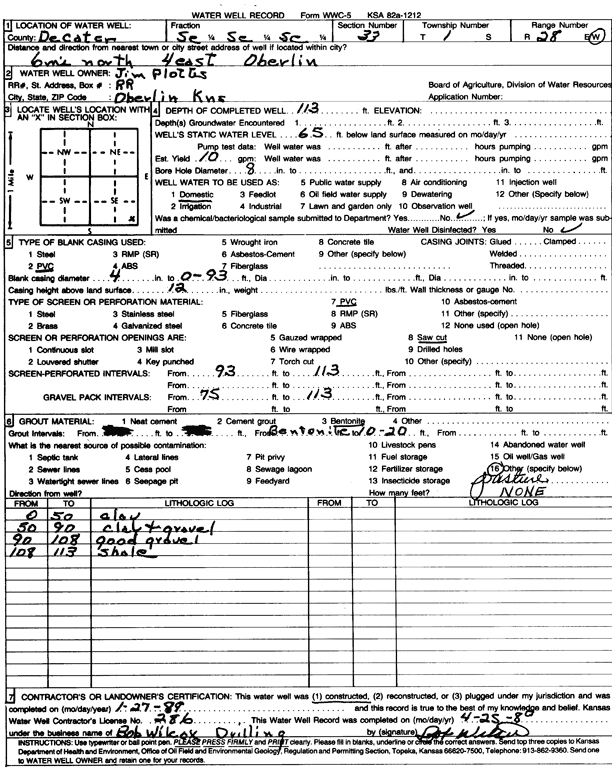 WATER WELL RECORD Form WWC-5 KSA 82a-1212
1 LOCATION OF WATER WELL: Fraction Section Number Township Number Range Number
County: Decater Se ¼ Se ¼ Se ¼ 33 T 1 S R 28 E/W
Distance and direction from nearest town or city street address of well if located within city?
6mi north 4east Oberlin
2 WATER WELL OWNER: Jim Plotts
RR#, St. Address, Box #: RR Board of Agriculture, Division of Water Resources
City, State, ZIP Code: Oberlin Kns Application Number:
3 LOCATE WELL'S LOCATION WITH AN "X" IN SECTION BOX:
N
NW NE
W E
SW SE
X
S
1 Mile
4 DEPTH OF COMPLETED WELL 113 ft. ELEVATION:
Depth(s) Groundwater Encountered 1. ft. 2. ft. 3. ft.
WELL'S STATIC WATER LEVEL 65 ft. below land surface measured on mo/day/yr
Pump test data: Well water was ft. after hours pumping gpm
Est. Yield 10 gpm: Well water was ft. after hours pumping gpm
Bore Hole Diameter 8 in. to ft., and in. to ft.
WELL WATER TO BE USED AS: 5 Public water supply 8 Air conditioning 11 Injection well
1 Domestic 3 Feedlot 6 Oil field water supply 9 Dewatering 12 Other (Specify below)
2 Irrigation 4 Industrial 7 Lawn and garden only 10 Observation well
Was a chemical/bacteriological sample submitted to Department? Yes No ✓; If yes, mo/day/yr sample was submitted
Water Well Disinfected? Yes No ✓
5 TYPE OF BLANK CASING USED: 5 Wrought iron 8 Concrete tile CASING JOINTS: Glued Clamped
1 Steel 3 RMP (SR) 6 Asbestos-Cement 9 Other (specify below) Welded
2 PVC 4 ABS 7 Fiberglass Threaded
Blank casing diameter 4 in. to 0-93 ft., Dia in. to ft., Dia in. to ft.
Casing height above land surface 12 in., weight lbs./ft. Wall thickness or gauge No.
TYPE OF SCREEN OR PERFORATION MATERIAL: 7 PVC 10 Asbestos-cement
1 Steel 3 Stainless steel 5 Fiberglass 8 RMP (SR) 11 Other (specify)
2 Brass 4 Galvanized steel 6 Concrete tile 9 ABS 12 None used (open hole)
SCREEN OR PERFORATION OPENINGS ARE: 5 Gauzed wrapped 8 Saw cut 11 None (open hole)
1 Continuous slot 3 Mill slot 6 Wire wrapped 9 Drilled holes
2 Louvered shutter 4 Key punched 7 Torch cut 10 Other (specify)
SCREEN-PERFORATED INTERVALS: From 93 ft. to 113 ft., From ft. to ft.
From ft. to ft., From ft. to ft.
GRAVEL PACK INTERVALS: From 75 ft. to 113 ft., From ft. to ft.
From ft. to ft., From ft. to ft.
6 GROUT MATERIAL: 1 Neat cement 2 Cement grout 3 Bentonite 4 Other
Grout Intervals: From ft. to ft., From Bentonite 10-20 ft., From ft. to ft.
What is the nearest source of possible contamination: 10 Livestock pens 14 Abandoned water well
1 Septic tank 4 Lateral lines 7 Pit privy 11 Fuel storage 15 Oil well/Gas well
2 Sewer lines 5 Cess pool 8 Sewage lagoon 12 Fertilizer storage 16 Other (specify below)
3 Watertight sewer lines 6 Seepage pit 9 Feedyard 13 Insecticide storage pasture
Direction from well? How many feet? NONE
FROM TO LITHOLOGIC LOG FROM TO LITHOLOGIC LOG
0 50 clay
50 90 clay + gravel
90 108 good gravel
108 113 shale
7 CONTRACTOR'S OR LANDOWNER'S CERTIFICATION: This water well was (1) constructed, (2) reconstructed, or (3) plugged under my jurisdiction and was
completed on (mo/day/year) 1-27-89 and this record is true to the best of my knowledge and belief. Kansas
Water Well Contractor's License No. 286 This Water Well Record was completed on (mo/day/yr) 4-25-89
under the business name of Bob Wilcox Drilling by (signature) Bob Wilcox
INSTRUCTIONS: Use typewriter or ball point pen. PLEASE PRESS FIRMLY and PRINT clearly. Please fill in blanks, underline or circle the correct answers. Send top three copies to Kansas
Department of Health and Environment, Office of Oil Field and Environmental Geology, Regulation and Permitting Section, Topeka, Kansas 66620-7500, Telephone: 913-862-9360. Send one
to WATER WELL OWNER and retain one for your records.